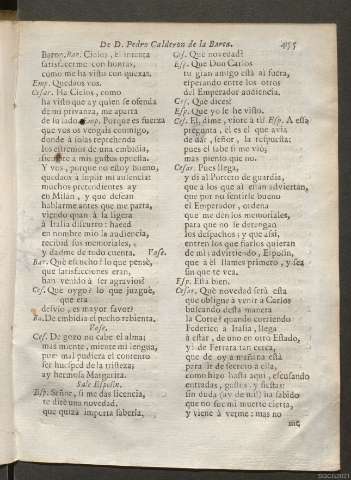 De D. Pedro Calderon de la Barca. 455
Baron. Bar. Cielos, el intenta
satisfacerme con honras,
como me ha visto con quexas.
Emp. Quedaos vos.
Cesar. Ha Cielos, como
ha visto que ay quien se ofenda
de mi privanza, me aparta
de su lado. Emp. Porque es fuerza
que vos os vengais conmigo,
donde à solas reprehenda
los estremos de una embidia,
siempre à mis gustos opuesta.
Y vos, porque no estoy bueno,
quedaos à suplir mi ausencia:
muchos pretendientes ay
en Milan, y que desean
hablarme antes que me parta,
viendo quan à la ligera
à Italia discurro: haced
en nombre mio la audiencia,
recibid sus memoriales,
y dadme de todo cuenta. Vase.
Bar. Què escucho? lo que pensè,
que satisfacciones eran,
han venido à ser agravios?
Ces. Què oygo? lo que juzguè,
que era
desvio, es mayor favor?
Ba. De embidia el pecho rebienta.
Vase.
Ces. De gozo no cabe el alma:
mas miente, miente mi lengua,
que mal pudiera el contento
ser huesped de la tristeza;
ay hermosa Margarita.
Sale Espolin.
Esp. Señor, si me das licencia,
te dirè una novedad,
que quizà importa saberla,
Ces. Què novedad?
Esp. Que Don Carlos
tu gran amigo està ai fuera,
esperando entre los otros
del Emperador audiencia.
Ces. Què dices?
Esp. Que yo le he visto.
Ces. El, dime, viòte à ti? Esp. A essa
pregunta, el es el que avia
de dàr, señor, la respuesta:
pues el sabe si me viò;
mas pienso que no.
Cesar. Pues llega,
y dì al Portero de guardia,
que à los que ai están adviertan,
que por no sentirse bueno
el Emperador, ordena
que me dèn los memoriales,
para que no se detengan
los despachos; y que assi,
entren los que hablar quieran
de mi; advirtiendo, Espolin,
que à èl llames primero, y sea
sin que te vea.
Esp. Està bien.
Cesar. Què novedad serà esta
que obligue à venir à Carlos
buscando desta manera
la Corte? quando corriendo
Federico à Italia, llega
à estàr, de uno en otro Estado,
y de Ferrara tan cerca,
que de oy à mañana està
para ir de secreto à ella,
como hizo hasta aqui, escusando
entradas, gustos, y fiestas:
sin duda (ay de mi!) ha sabido
que no fue mi muerte cierta,
y viene à verme: mas no
me